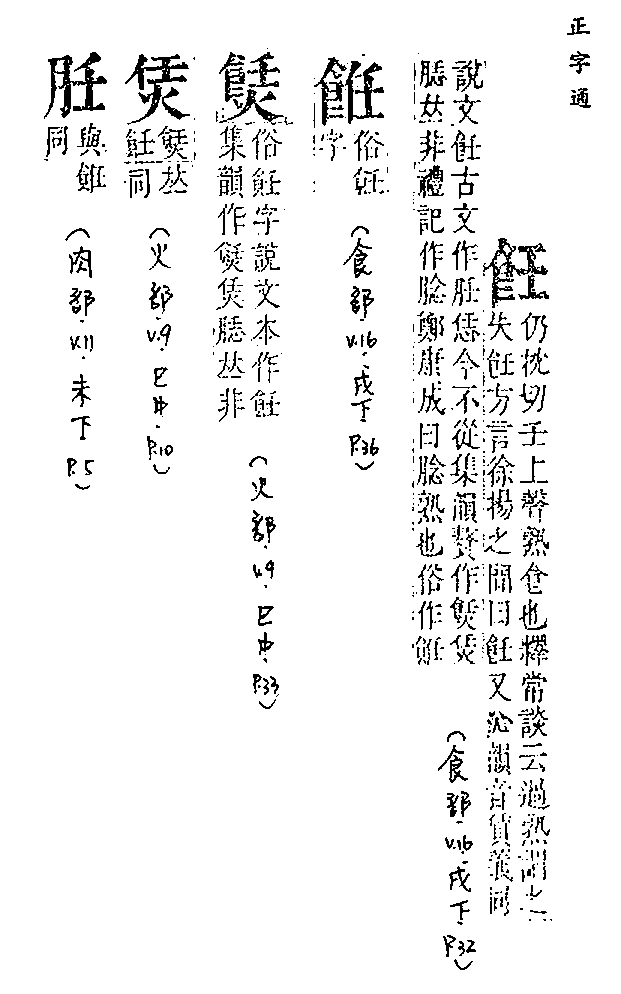 正字通
飪
仍枕切壬上聲熟食也釋常談云過熟謂之
失飪方言徐揚之閒曰飪又沁韻音賃義同
說文飪古文作肚恁今不從集韻贅作𩞧𤈶
腍𠀤非禮記作腍鄭康成曰腍熟也俗作餁
(食部.V.16.戌下.P.32)
餁
俗飪
字
(食部.V.16.戌下.P.36)
俗飪字說文本作飪
集韻作𤈶腍𠀤非
(火部.V.9.巳中.P.33)
𠀤
飪同
(火部.V.9.巳中.P.10)
與餁
同
(肉部.V.11.未下.P.5)